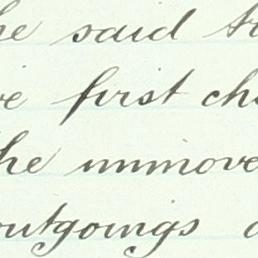 he said
first
the immove
outgoings